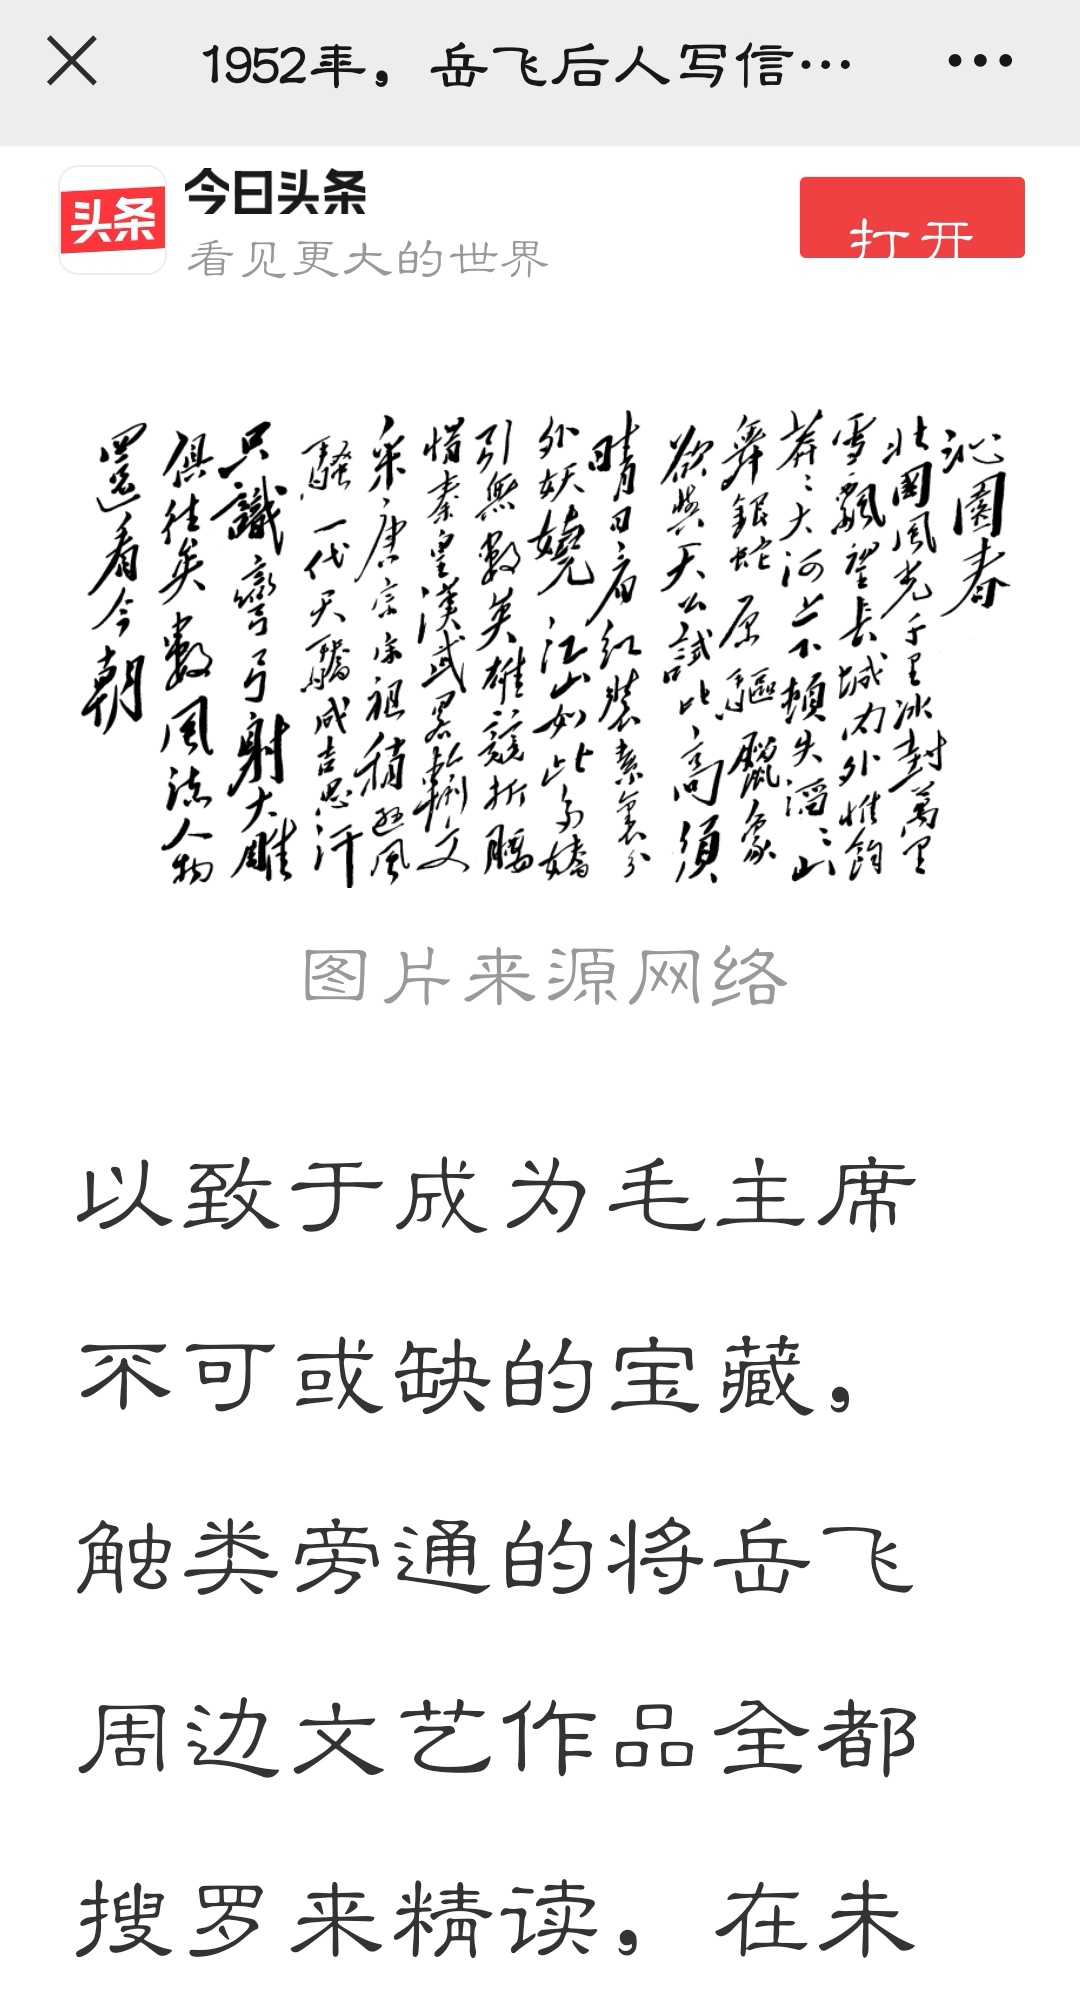 1952年，岳飞后人写信…
头条
今日头条
看见更大的世界
打开
沁園春
北國風光千里冰封萬里
雪飄望長城内外惟餘
莽〻大河上下頓失滔〻山
舞銀蛇原驅臘象
欲與天公試比高須
晴日看紅裝素裹分
外妖嬈江山如此多嬌
引無數英雄競折腰
惜秦皇漢武畧輸文
采唐宗宋祖稍遜風
騷一代天驕成吉思汗
只識彎弓射大雕
俱往矣數風流人物
還看今朝
图片来源网络
以致于成为毛主席
不可或缺的宝藏，
触类旁通的将岳飞
周边文艺作品全都
搜罗来精读，在未